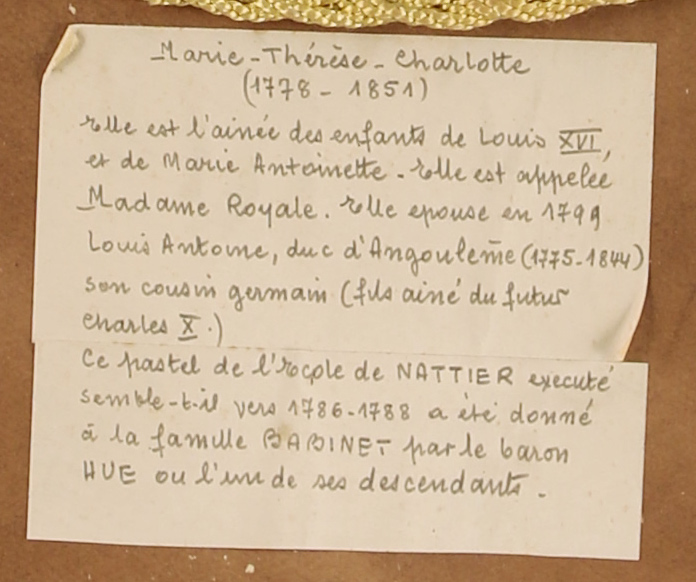 Marie-Thérèse-Charlotte
(1778 - 1851)
Elle est l'ainée des enfants de Louis XVI,
et de Marie Antoinette. Elle est appelée
Madame Royale. Elle epouse en 1799
Louis Antoine, duc d'Angoulême (1775-1844)
son cousin germain (fils ainé du futur
Charles X.)
Ce pastel de l'Ecole de NATTIER executé
semble-t-il vers 1786-1788 a été donné
à la famille BABINET par le baron
HUE ou l'un de ses descendants.